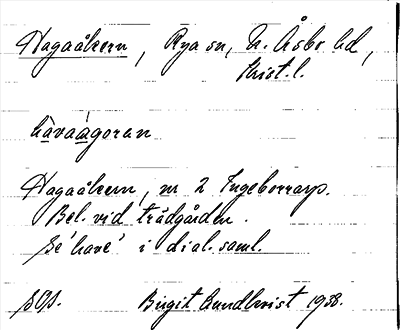 Hagaåkern, Rya sn, N. Åsbo hd,
Krist. l.
hàvaágoran
Hagaåkern, nr 2 Ingeborrarp.
Bel. vid trädgården.
Se 'have' i dial. saml.
Birgit Sundkvist 1938.